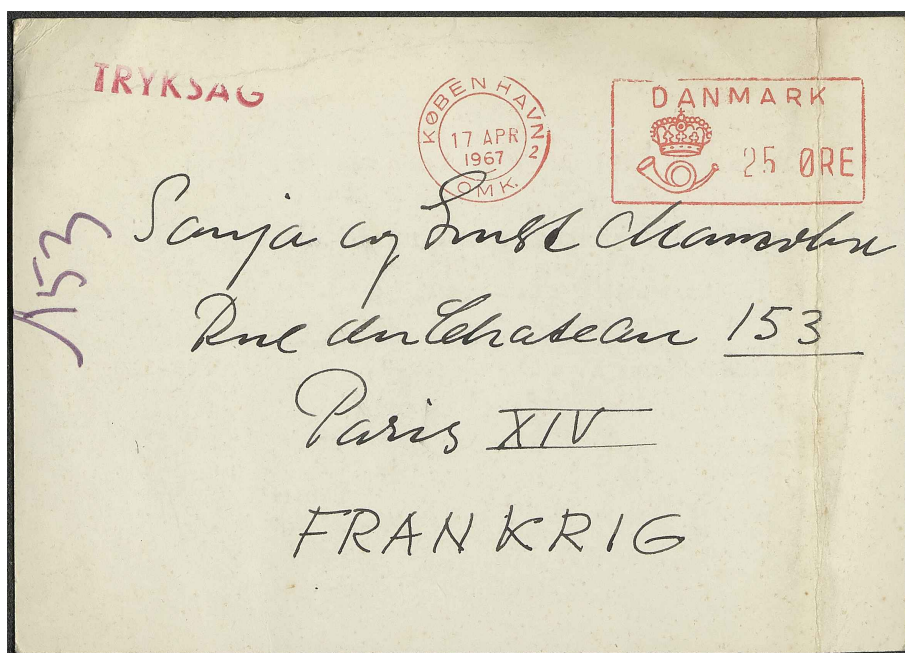 TRYKSAG
KØBENHAVN 2
17 APR
1967
OMK.
DANMARK
25 ØRE
153
Sonja og Ernst Mancoba
Rue du Chateau 153
Paris XIV
FRANKRIG